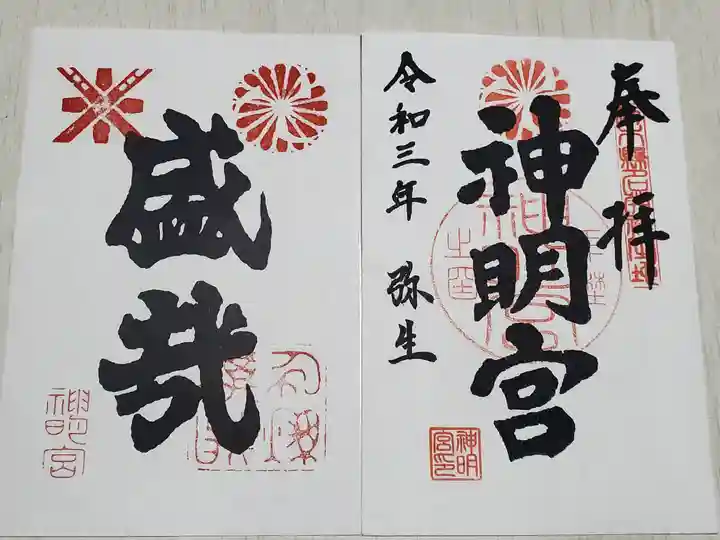 奉拝
神明宮
令和三年 弥生
神明
宮印
盛哉
神明宮